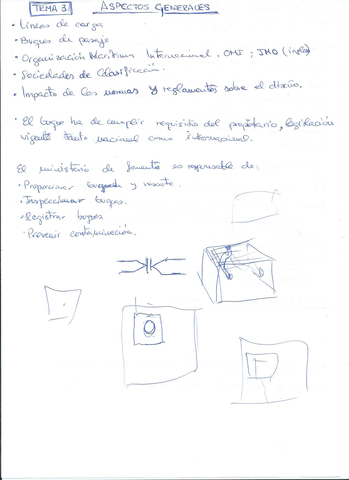 TEMA 3 ASPECTOS GENERALES
• Líneas de carga
• Buques de pasaje
• Organización Marítima Internacional. OMI ; IMO (inglés)
• Sociedades de Clasificación.
• Impacto de las normas y reglamentos sobre el diseño.
• El buque ha de cumplir requisitos del propietario, legislación
vigente tanto nacional como internacional.
El ministerio de fomento es responsable de:
• Proporcionar búsqueda y rescate.
• Inspeccionar buques.
• Registrar buques
• Prevenir contaminación.